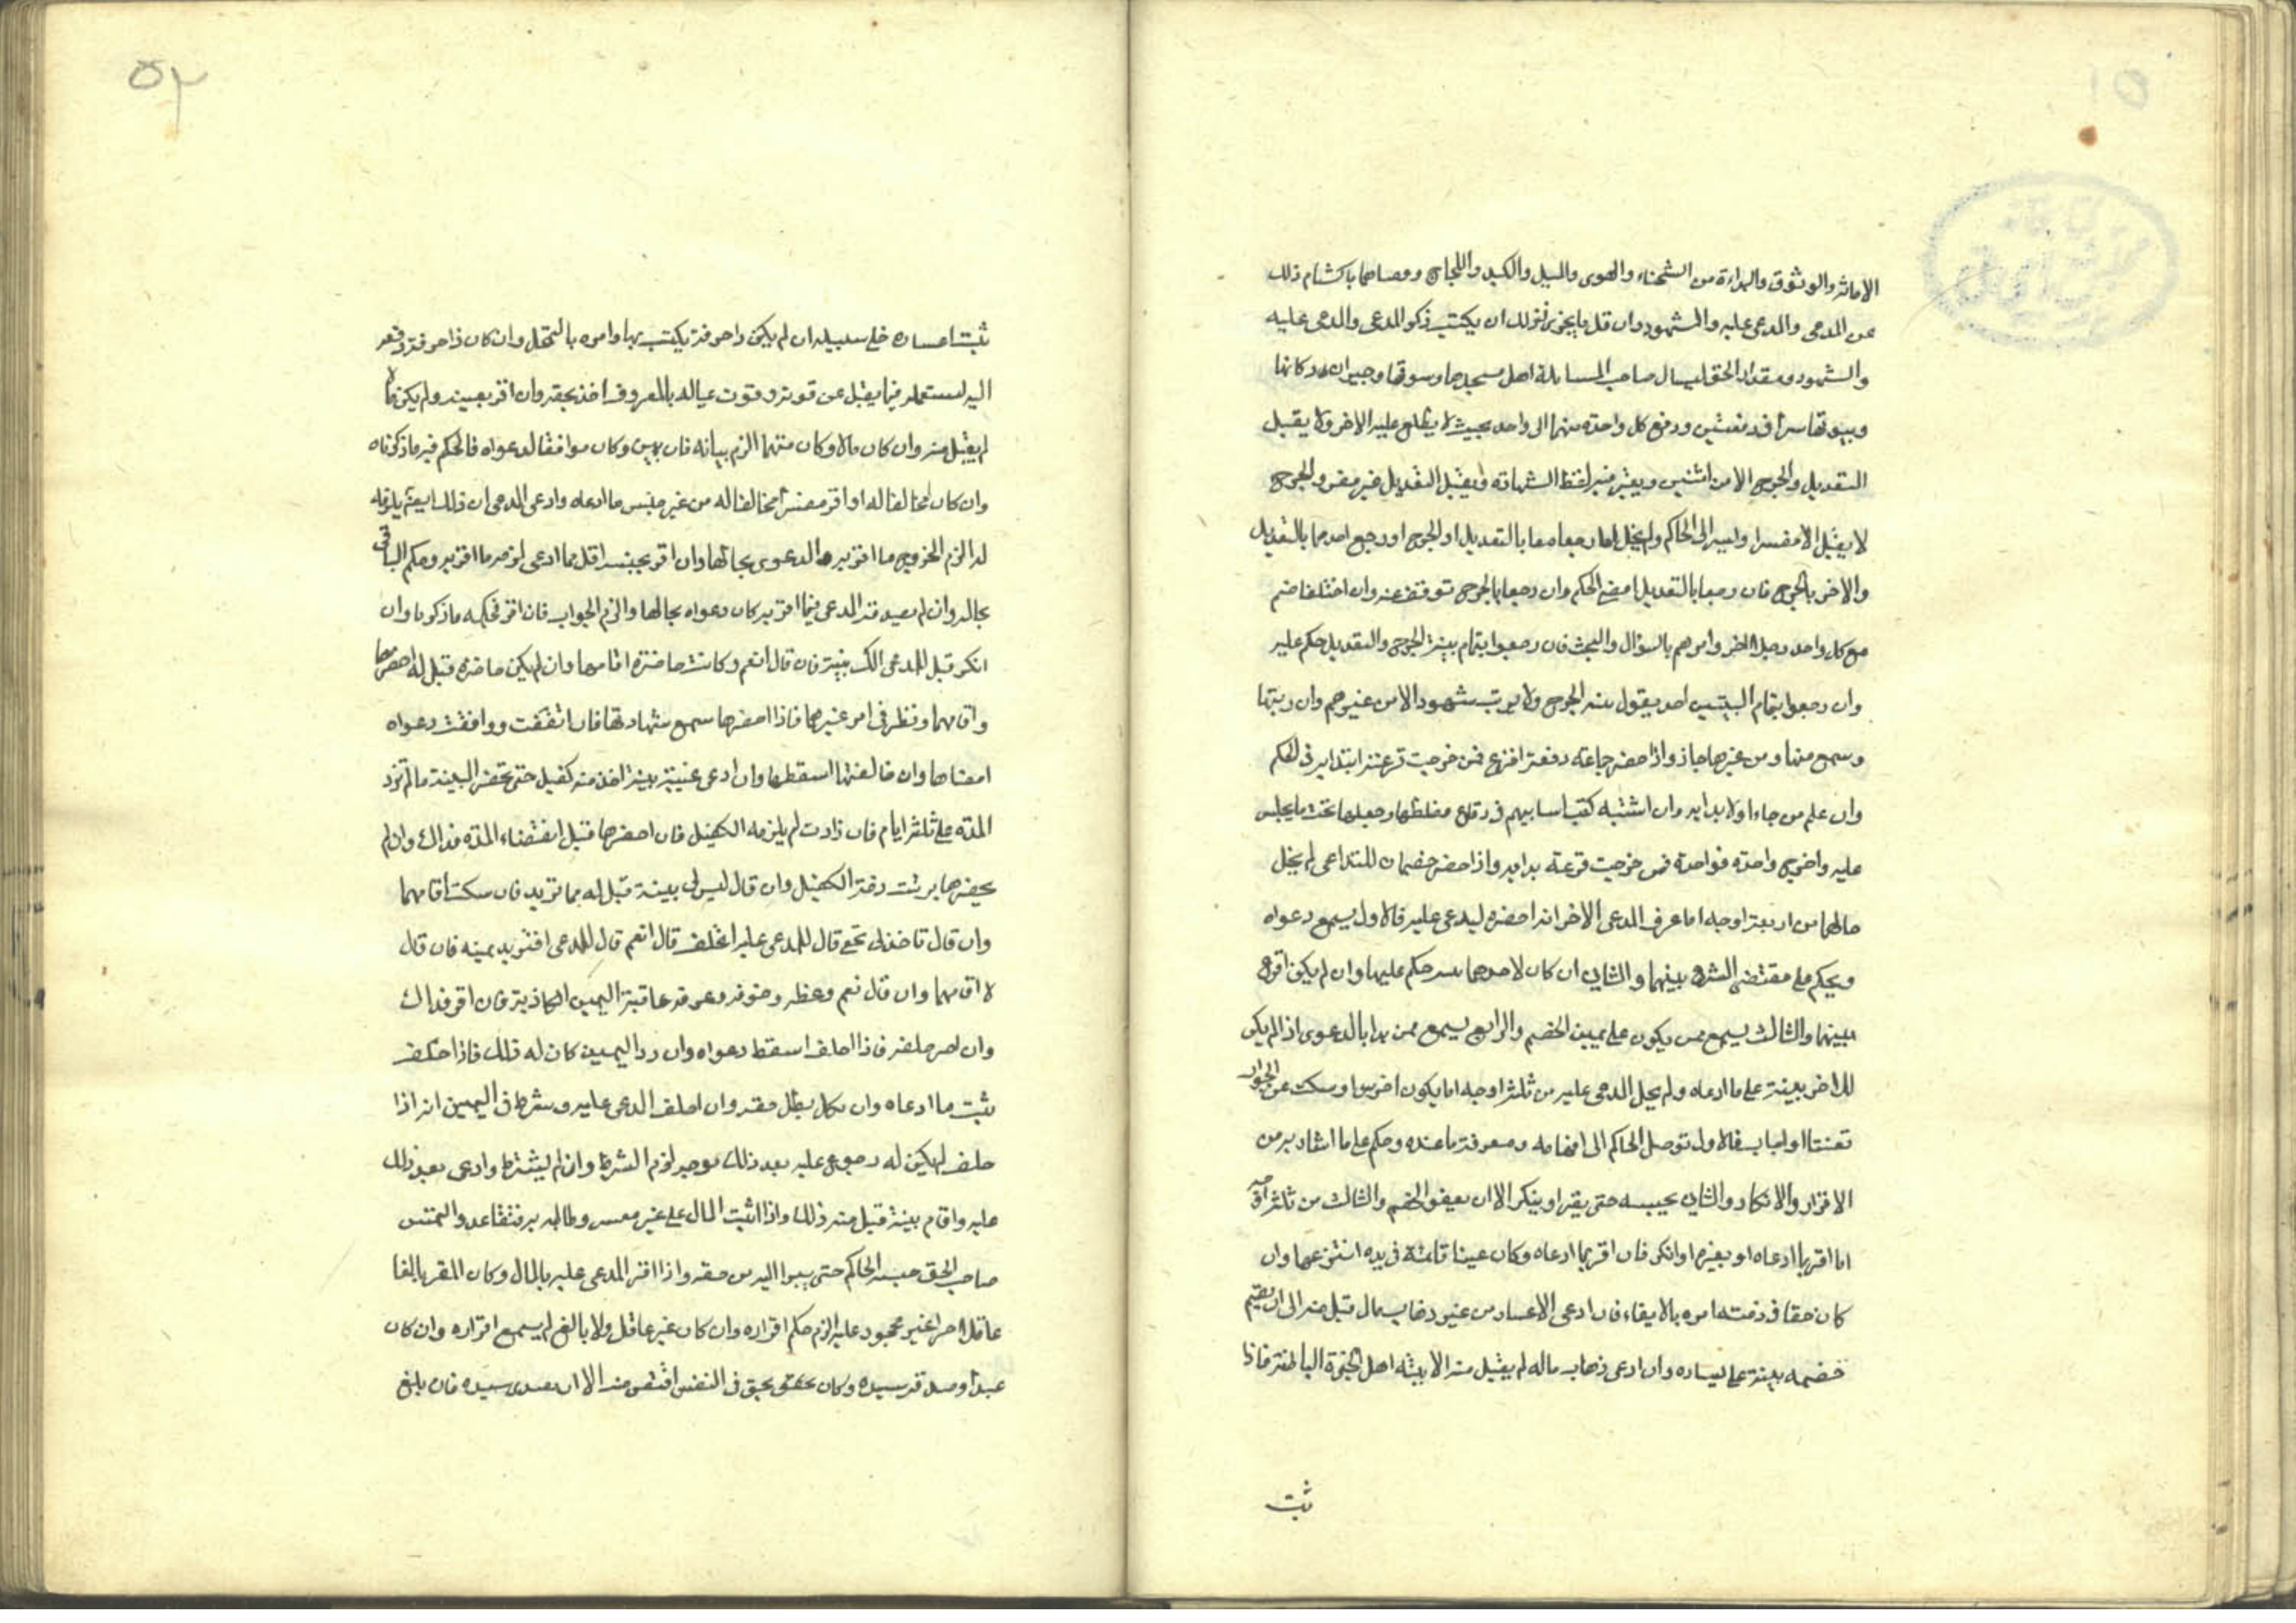 الامانة والوثوق والبراءة من الشحناء والهوى والميل والكيد واللجاج ووصاهما باكتتام ذلك
عن المدعى والمدعى عليه والمشهود وان قل ما يجرى فى ذلك ان يكتب ذكر المدعى والمدعى عليه
والشهود ومقدار الحق ليسال صاحب المسايلة اهل مسجدها وسوقها وجيران دكانها
وبيوتها سرا فى دفعتين ودفع كل واحدة منهما الى واحد بحيث لا يطلع عليه الاخر ولا يقبل
التعديل والجرح الا من اثنين ويعتبر فيه لفظ الشهادة ويقبل التعديل غير مفسر والجرح
لا يقبل الا مفسرا وليس الى الحاكم ولم يخل اما رجعا معا بالتعديل او الجرح او رجع احدهما بالتعديل
والاخر بالجرح فان رجعا بالتعديل امضى الحكم وان رجعا بالجرح توقف عنه وان اختلفا ضم
مع كل واحد رجلا اخر وامرهم بالسؤال والبحث فان رجعوا بتمام بينة الجرح والتعديل حكم عليه
وان رجعوا بتمام البينتين احد يقول بينة الجرح ولا يرتب شهودا لا من غيرهم وان رتبها
وسمع منها ومن غيرها جاز واذا حضره جماعة دفعة اقرع فمن خرجت قرعته ابتدا به فى الحكم
وان علم من جاء اولا بدا به وان اشتبه كتب اساميهم فى رقاع وخلطها وجعلها تحت ما يجلس
عليه واخرج واحدة فواحدة فمن خرجت قرعته بدا به واذا حضر خصمان للتداعى لم يخل
حالهما من اربعة اوجه اما عرف المدعى الاخر انه احضره ليدعى عليه فالاول يسمع دعواه
ويحكم على مقتضى الشرع بينهما والثانى ان كان لاحدهما حكم عليهما وان لم يكن اقرع
بينهما والثالث يسمع ممن يكون على يمين الخصم والرابع يسمع ممن بدا بالدعوى اذا لم يكن
للاخر بينة على ما ادعاه ولم يخل المدعى عليه من ثلثة اوجه اما يكون اخرس او سكت عن الجواب
تعنتا او اجاب فالاول توصل الحاكم الى افهامه ومعرفة ما عنده وحكم على ما اشار به من
الاقرار والانكار والثانى يحبسه حتى يقر او ينكر الا ان يعفو الخصم والثالث من ثلثة اوجه
اما اقر بما ادعاه او بغيره او انكر فان اقر بما ادعاه وكان عينا قائمة فى يده انتزعها وان
كان حقا فى ذمته امره بالايفاء فان ادعى الاعسار من غير ذهاب مال قبل منه الى ان يقيم
خصمه بينة على يساره وان ادعى ذهاب ماله لم يقبل منه الا بينة اهل الخبرة الباطنة فاذا
ثبت
٥٢
ثبت اعساره خلى سبيله ان لم يكن ذا حرفة يكتسب بها وامره بالتمحل وان كان ذا حرفة دفعه
اليه ليستعمله فيما يفضل عن قوته وقوت عياله بالمعروف اخذ بحقه وان اقر بعينه ولم يكن مالا
لم يقبل منه وان كان مالا وكان متهما الزم بيانه فان بين وكان موافقا لدعواه فالحكم فيه ما ذكرناه
وان كان مخالفا له او اقر مفسرا مخالفا له من غير جنس ما ادعاه وادعى المدعى ان ذلك ايضا يلزمه
له الزم الخروج مما اقر به والدعوى بحالها وان اقر بجنسه اقل مما ادعى لزمه ما اقر به وحكم الباقى
بحاله وان لم يصدقه المدعى فيما اقر به كان دعواه بحالها والزم الجواب فان اقر فحكمه ما ذكرنا وان
انكر قيل للمدعى الك بينة فان قال نعم وكانت حاضرة اقامها وان لم يكن حاضرة قيل له احضرها
واقامهما ونظر فى امر غيرهما فاذا احضرها سمع شهادتها فان اتفقت ووافقت دعواه
امضاها وان خالفتها اسقطها وان ادعى غيبة بينة اخذ منه كفيل حتى يحضر البينة ما لم تزد
المدة على ثلثة ايام فان زادت لم يلزمه الكفيل فان احضرها قبل انقضاء المدة فذاك وان لم
يحضرها برئت ذمة الكفيل وان قال ليس لى بينة قيل له بما تريد فان سكت اقامهما
وان قال تاخذ لى حقى قال للمدعى عليه اتحلف قال نعم قال للمدعى افتريد يمينه فان قال
لا اقامهما وان قال نعم وعظه وخوفه وعرفه عاقبة اليمين الكاذبة فان اقر فذاك
وان اصر حلفه فاذا حلف اسقط دعواه وان رد اليمين كان له ذلك فاذا حلف
ثبت ما ادعاه وان نكل بطل حقه وان احلف المدعى عليه وشرط فى اليمين انه اذا
حلف لم يكن له رجوع عليه بعد ذلك بوجه لزم الشرط وان لم يشترط وادعى بعد ذلك
عليه واقام بينة قبل منه ذلك واذا اثبت المال على غير معسر وطالبه به فتقاعد والتمس
صاحب الحق حبسه الحاكم حتى يبرا اليه من حقه واذا اقر المدعى عليه بالمال وكان المقر بالغا
عاقلا حرا غير محجور عليه الزم حكم اقراره وان كان غير عاقل ولا بالغ لم يسمع اقراره وان كان
عبدا وصدقه سيده وكان بحق فى النفس اقتص منه الا ان يفدى سيده فان بلغ